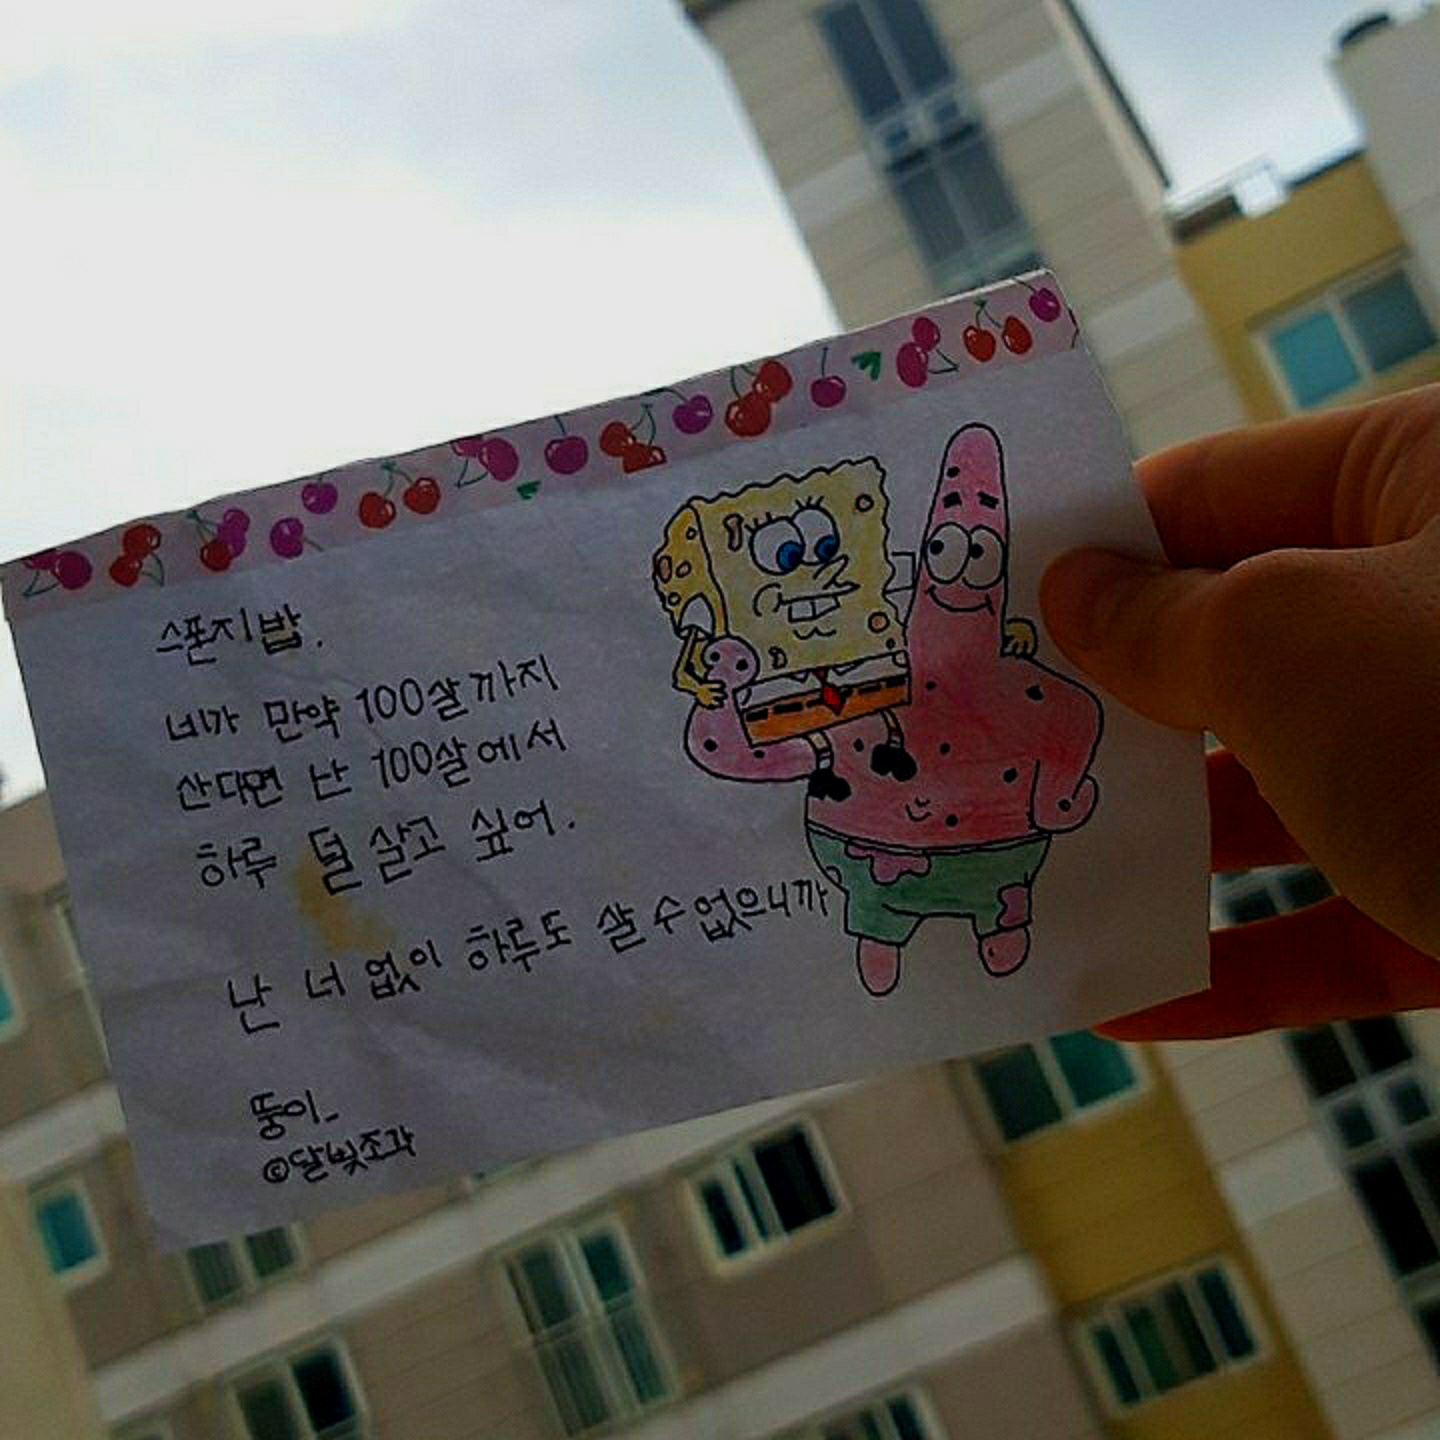 스폰지밥.
네가 만약 100살까지
산다면 난 100살에서
하루 덜 살고 싶어.
난 너 없이 하루도 살 수 없으니까
뚱이_
©달빛조각